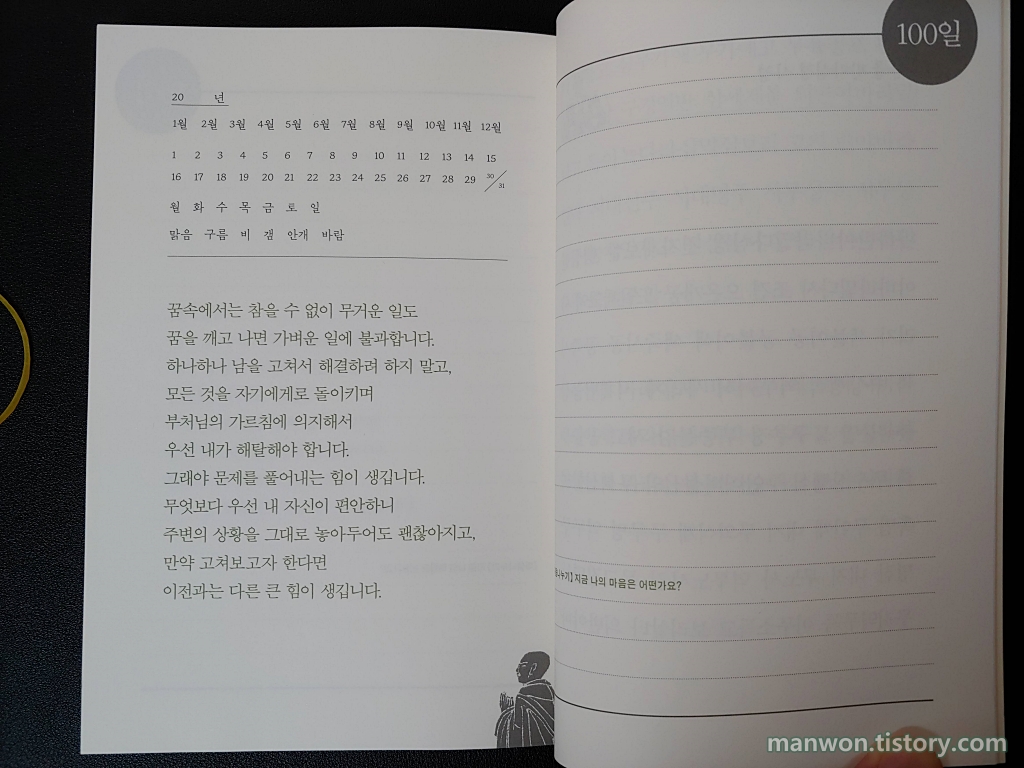 20 년
1월 2월 3월 4월 5월 6월 7월 8월 9월 10월 11월 12월
1 2 3 4 5 6 7 8 9 10 11 12 13 14 15
16 17 18 19 20 21 22 23 24 25 26 27 28 29 30/31
월 화 수 목 금 토 일
맑음 구름 비 갬 안개 바람
꿈속에서는 참을 수 없이 무거운 일도
꿈을 깨고 나면 가벼운 일에 불과합니다.
하나하나 남을 고쳐서 해결하려 하지 말고,
모든 것을 자기에게로 돌이키며
부처님의 가르침에 의지해서
우선 내가 해탈해야 합니다.
그래야 문제를 풀어내는 힘이 생깁니다.
무엇보다 우선 내 자신이 편안하니
주변의 상황을 그대로 놓아두어도 괜찮아지고,
만약 고쳐보고자 한다면
이전과는 다른 큰 힘이 생깁니다.
100일
나누기] 지금 나의 마음은 어떤가요?
manwon.tistory.com